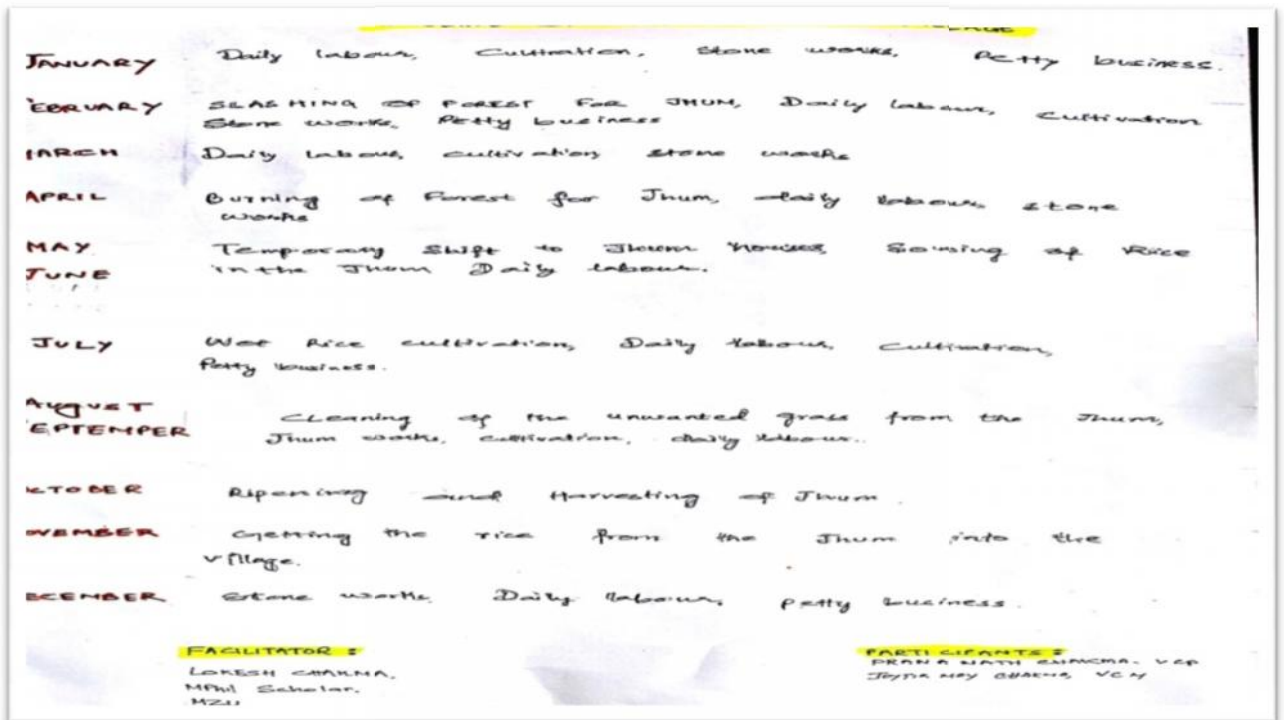 JANUARY Daily labour, Cultivation, Stone works, Petty business.
EBRUARY SLASHING OF FOREST FOR JHUM, Daily labour, Cultivation
Stone works, Petty business
MARCH Daily labour, cultivation, stone works
APRIL Burning of Forest for Jhum, daily labour, stone
works
MAY Temporary Shift to Jhum houses, Sowing of Rice
JUNE in the Jhum Daily labour.
JULY Wet Rice cultivation, Daily labour, Cultivation,
Petty business.
AUGUST
EPTEMPER Cleaning of the unwanted grass from the Jhum,
Jhum works, cultivation, daily labour..
CTOBER Ripening and Harvesting of Jhum
OVEMBER Getting the rice from the Jhum into the
village.
ECEMBER Stone works, Daily labour, petty business.
FACILITATOR :
LOKESH CHAKMA,
MPhil Scholar,
MZU
PARTICIPANTS :
PRANA NATH CHAKMA, VCP
CHAKMA, VCM